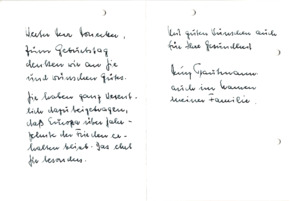 Herrn Honecker,
zum Geburtstag
denken wir an Sie
und wünschen Gutes.
Sie haben ganz wesent-
lich dazu beigetragen,
daß Europa über Jahr-
zehnte der Frieden er-
halten blieb. Das ehrt
Sie besonders.
Mit guten Wünschen auch
für Ihre Gesundheit
auch im Namen
meiner Familie.